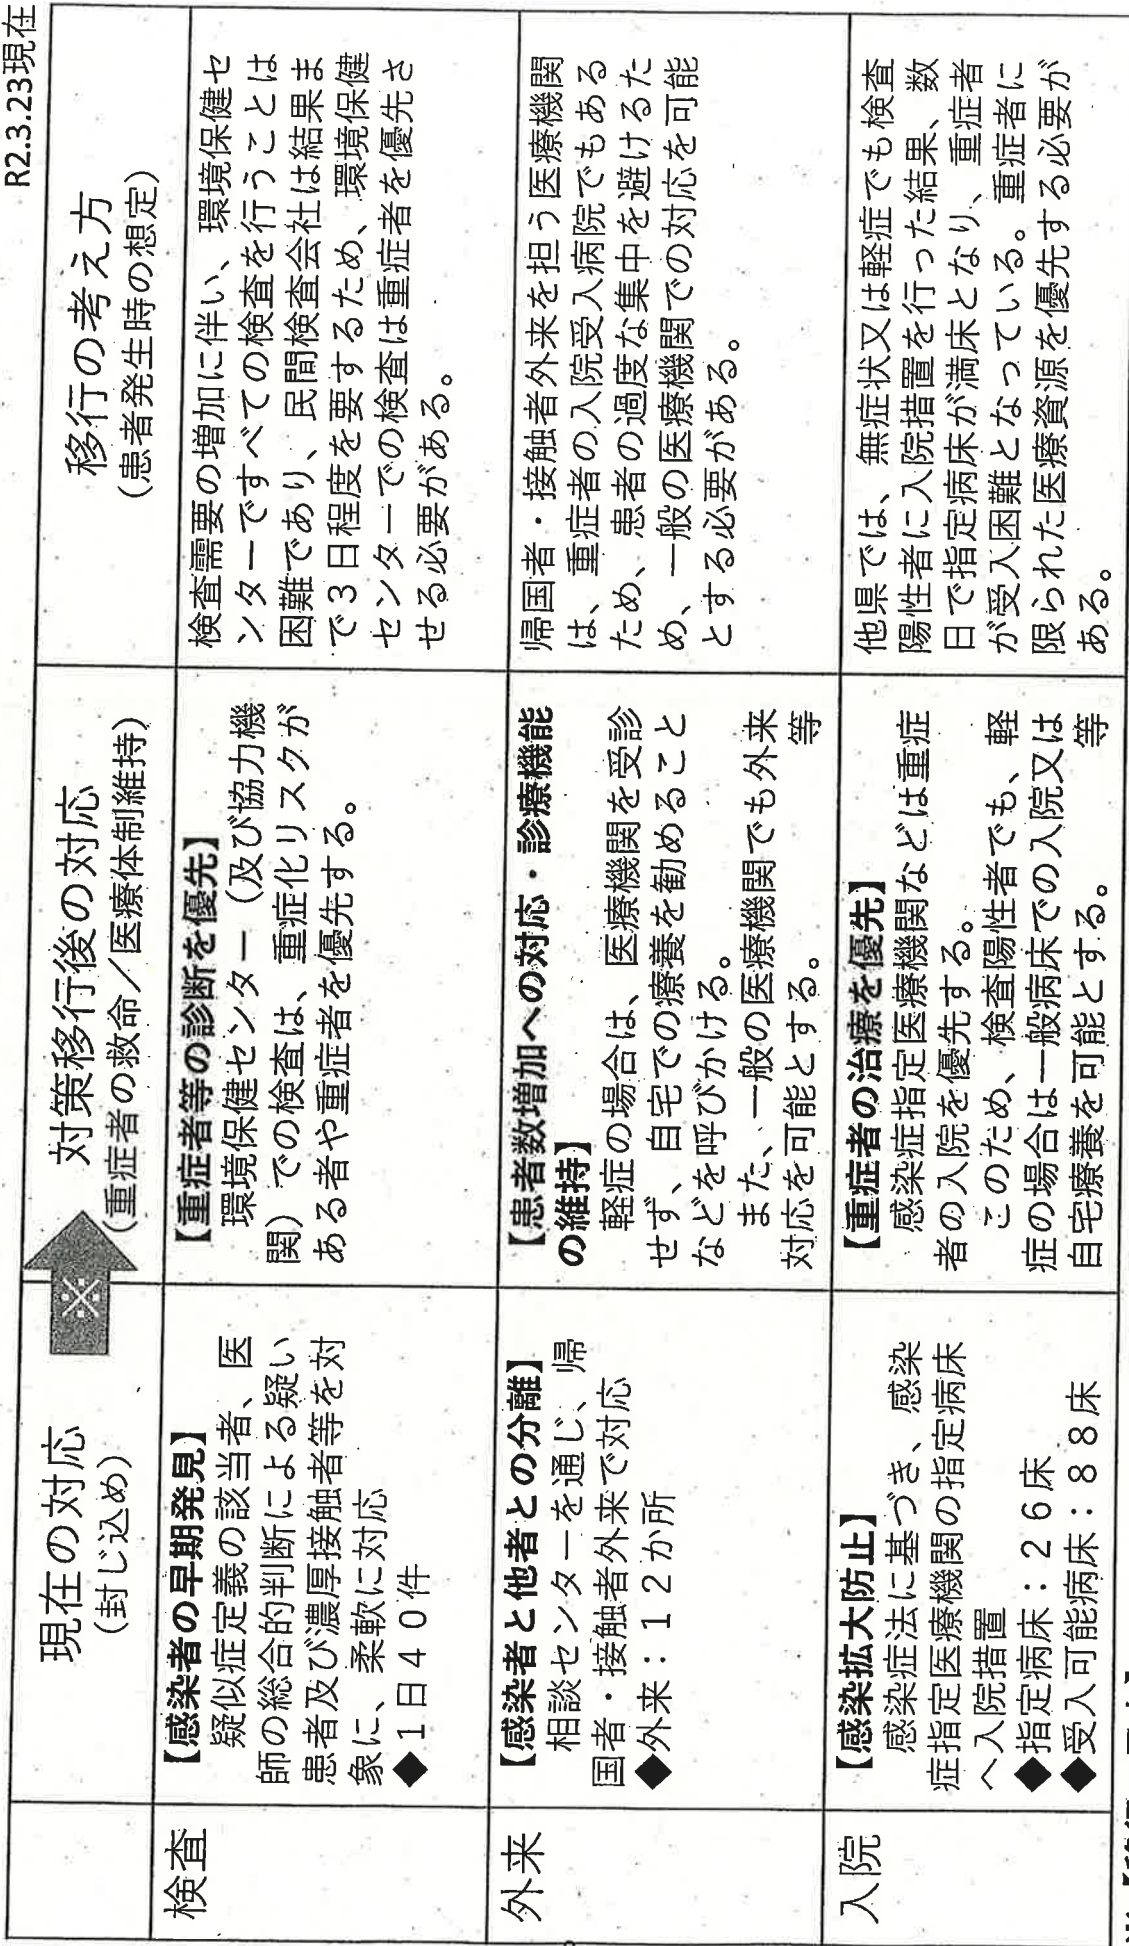 R2.3.23現在
現在の対応
(封じ込め)
※
対策移行後の対応
(重症者の救命/医療体制維持)
移行の考え方
(患者発生時の想定)
検査
【感染者の早期発見】
疑似症定義の該当者、医
師の総合的判断による疑い
患者及び濃厚接触者等を対
象に、柔軟に対応
◆1日40件
【重症者等の診断を優先】
環境保健センター(及び協力機
関)での検査は、重症化リスクが
ある者や重症者を優先する。
検査需要の増加に伴い、環境保健セ
ンターですべての検査を行うことは
困難であり、民間検査会社は結果ま
で3日程度を要するため、環境保健
センターでの検査は重症者を優先さ
せる必要がある。
外来
【感染者と他者との分離】
相談センターを通じ、帰
国者・接触者外来で対応
◆外来:12か所
【患者数増加への対応・診療機能
の維持】
軽症の場合は、医療機関を受診
せず、自宅での療養を勧めること
などを呼びかける。
また、一般の医療機関でも外来
対応を可能とする。 等
帰国者・接触者外来を担う医療機関
は、重症者の入院受入病院でもある
ため、患者の過度な集中を避けるた
め、一般の医療機関での対応を可能
とする必要がある。
入院
【感染拡大防止】
感染症法に基づき、感染
症指定医療機関の指定病床
へ入院措置
◆指定病床:26床
◆受入可能病床:88床
【重症者の治療を優先】
感染症指定医療機関などは重症
者の入院を優先する。
このため、検査陽性者でも、軽
症の場合は一般病床での入院又は
自宅療養を可能とする。 等
他県では、無症状又は軽症でも検査
陽性者に入院措置を行った結果、数
日で指定病床が満床となり、重症者
が受入困難となっている。重症者に
限られた医療資源を優先する必要が
ある。